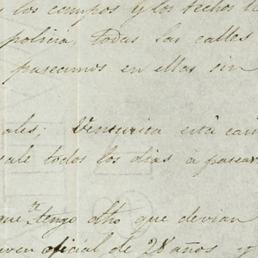 y los campos y los techos
policia, todas las calles
paseamos en ellas sin
Venturita está
sale todos los dias á pasear
que tengo dho que devian
oficial de 28 años y